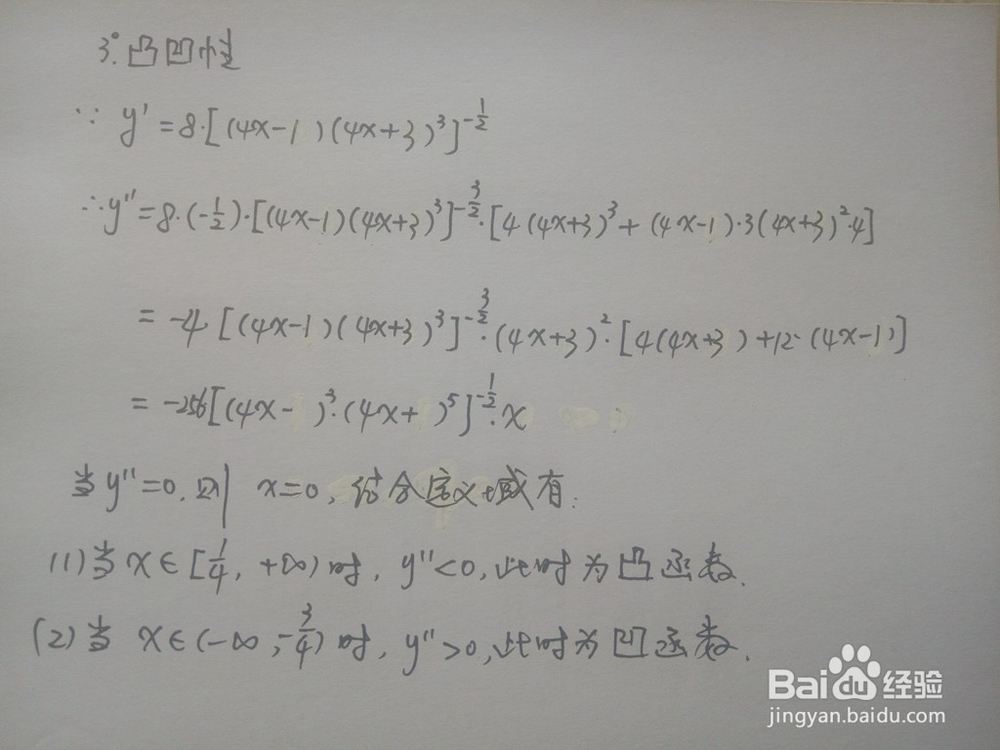 3°.凸凹性
∵ y'=8·[(4x-1)(4x+3)³]^-1/2
∴y''=8·(-1/2)·[(4x-1)(4x+3)³]^-3/2·[4(4x+3)³+(4x-1)·3(4x+3)²·4]
=-4·[(4x-1)(4x+3)³]^-3/2·(4x+3)²·[4(4x+3)+12·(4x-1)]
=-256[(4x- )³·(4x+ )⁵]^-1/2·x
当y''=0,则 x=0,结合定义域有:
(1)当x∈[1/4,+∞)时,y''<0,此时为凸函数.
(2)当 x∈(-∞,-3/4)时,y''>0,此时为凹函数.
Baidu经验
jingyan.baidu.com